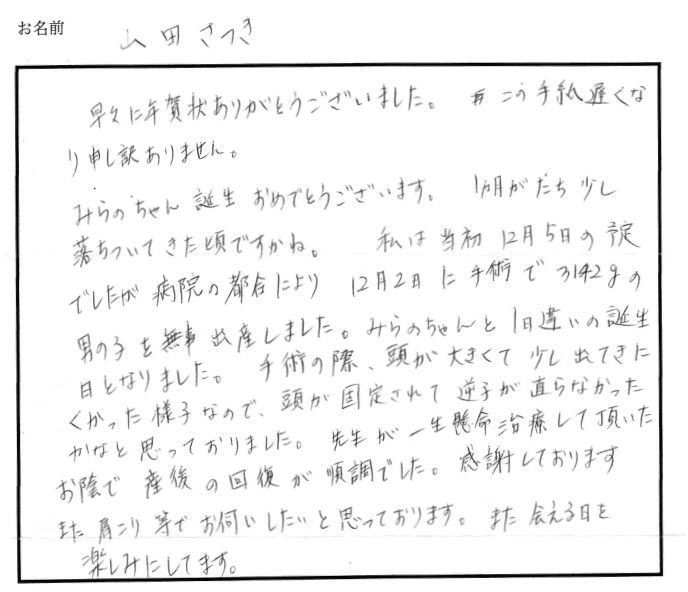 お名前 山田 さつき
早々に年賀状ありがとうございました。 この手紙遅くな
り申し訳ありません。
みらのちゃん 誕生 おめでとうございます。 1ヵ月がたち 少し
落ちついてきた頃ですかね。 私は当初 12月5日の予定
でしたが 病院の都合により 12月2日に手術で 3142gの
男の子を無事出産しました。みらのちゃんと1日違いの誕生
日となりました。 手術の際、頭が大きくて 少し出てきに
くかった様子なので、頭が固定されて 逆子が直らなかった
かなと思っておりました。 先生が一生懸命治療して頂いた
お陰で 産後の回復が順調でした。感謝しております
また肩こり等でお伺いしたいと思っております。 また会える日を
楽しみにしてます。